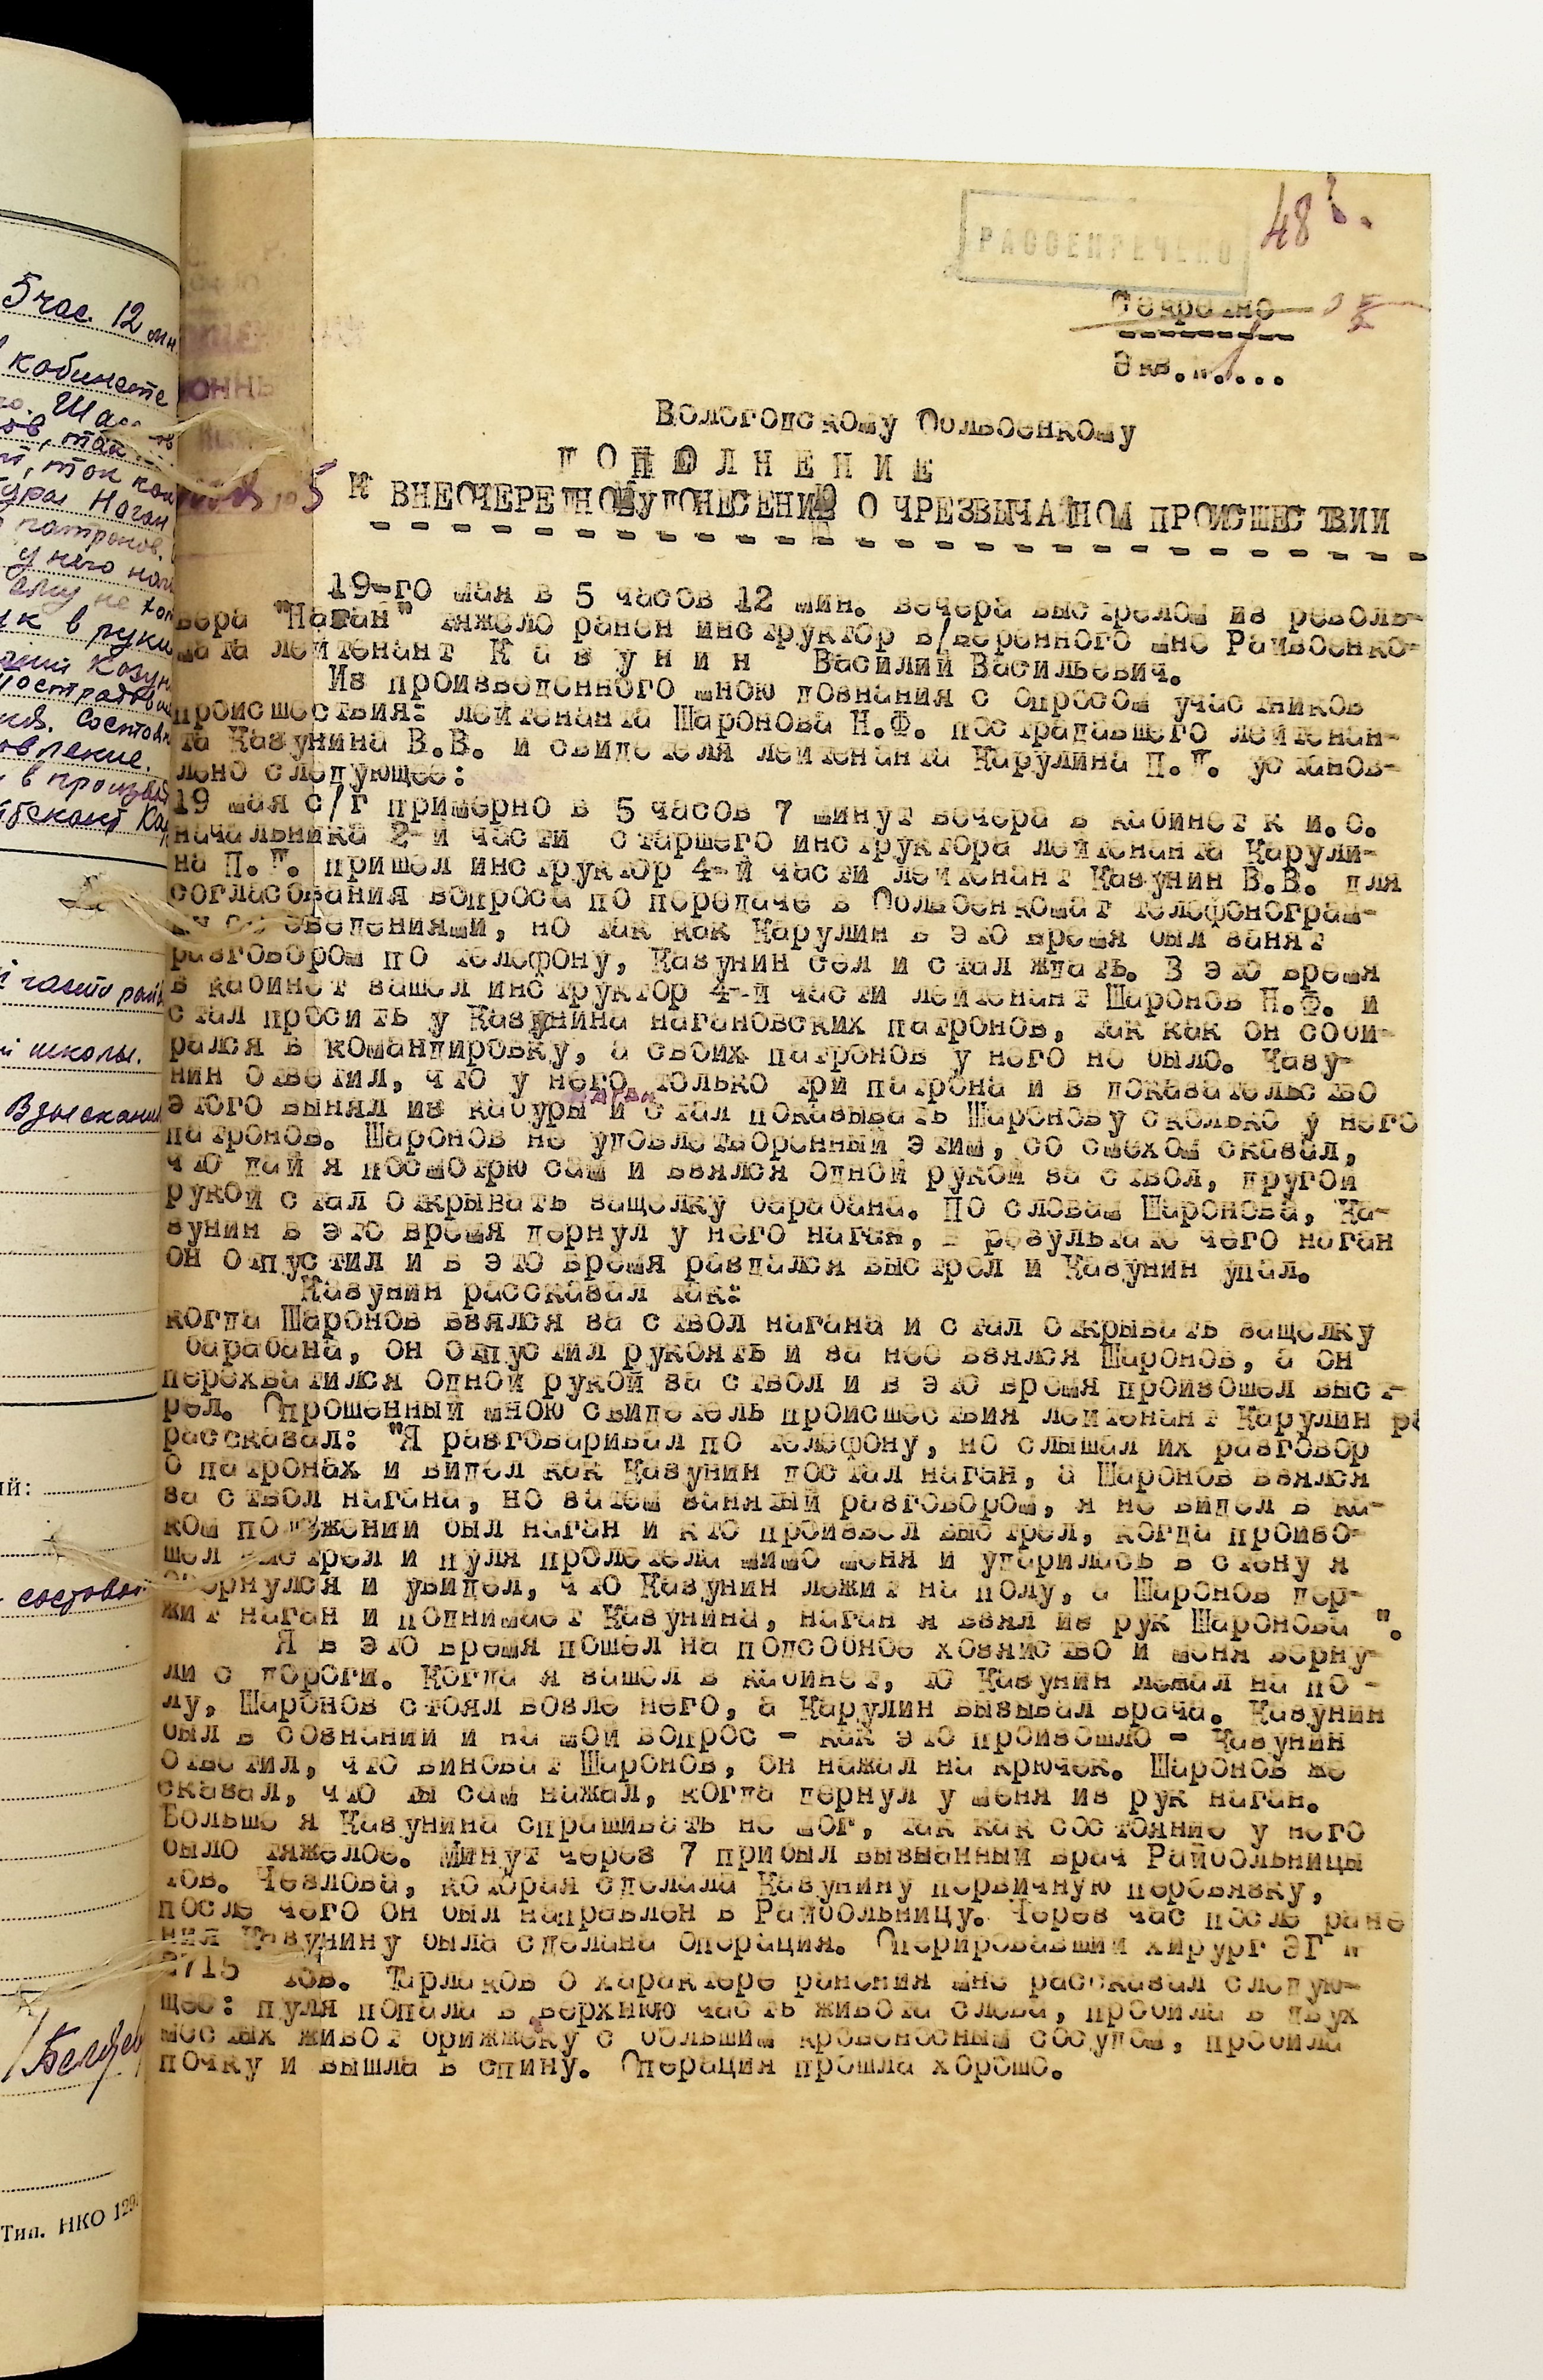 5 час. 12 мин
кабинете
Наган
патронов.
у него
ему не хот
в руки
пострадав
в произв
части рай
школы.
Взыскани
ий:
Тип. НКО
РАССЕКРЕЧЕНО
48
Секретно
Экз.№...
Вологодскому Облвоенкому
ДОПОЛНЕНИЕ
К ВНЕОЧЕРЕДНОМУ ДОНЕСЕНИЮ О ЧРЕЗВЫЧАЙНОМ ПРОИСШЕСТВИИ
19-го мая в 5 часов 12 мин. вечера выстрелом из револь-
вера "Наган" тяжело ранен инструктор в/веренного мне Райвоенко-
мата лейтенант Казунин Василий Васильевич.
Из произведенного мною дознания с опросом участников
происшествия: лейтенанта Шаронова Н.Ф. пострадавшего лейтенан-
та Казунина В.В. и свидетеля лейтенанта Карулина П.Г. установ-
лено следующее:
19 мая с/г примерно в 5 часов 7 минут вечера в кабинет к и.о.
начальника 2-й части старшего инструктора лейтенанта Карули-
на П.Г. пришел инструктор 4-й части лейтенант Казунин В.В. для
согласования вопроса по передаче в Облвоенкомат телефонограм-
мы со сведениями, но так как Карулин в это время был занят
разговором по телефону, Казунин сел и стал ждать. В это время
в кабинет зашел инструктор 4-й части лейтенант Шаронов Н.Ф. и
стал просить у Казунина нагановских патронов, так как он соби-
рался в командировку, а своих патронов у него не было. Казу-
нин ответил, что у него только три патрона и в доказательство
наган
этого вынял из кабуры и стал показывать Шаронову сколько у него
патронов. Шаронов не удовлетворенный этим, со смехом сказал,
что дай я посмотрю сам и взялся одной рукой за ствол, другой
рукой стал открывать защелку барабана. По словам Шаронова, Ка-
зунин в это время дернул у него наган, в результате чего наган
он отпустил и в это время раздался выстрел и Казунин упал.
Казунин рассказал так:
когда Шаронов взялся за ствол нагана и стал открывать защелку
барабана, он отпустил рукоять и за нее взялся Шаронов, а он
перехватился одной рукой за ствол и в это время произошел выст-
рел. Опрошенный мною свидетель происшествия лейтенант Карулин ра
рассказал: "Я разговаривал по телефону, но слышал их разговор
о патронах и видел как Казунин достал наган, а Шаронов взялся
за ствол нагана, но затем занятый разговором, я не видел в ка-
ком положении был наган и кто произвел выстрел, когда произо-
шел выстрел и пуля пролетела мимо меня и ударилась в стену я
обернулся и увидел, что Казунин лежит на полу, а Шаронов дер-
жит наган и поднимает Казунина, наган я взял из рук Шаронова ".
Я в это время пошел на подсобное хозяйство и меня верну-
ли с дороги. Когда я зашел в кабинет, то Казунин лежал на по -
лу, Шаронов стоял возле него, а Карулин вызывал врача. Казунин
был в сознании и на мой вопрос - как это произошло - Казунин
ответил, что виноват Шаронов, он нажал на крючек. Шаронов же
сказал, что ты сам нажал, когда дернул у меня из рук наган.
Больше я Казунина спрашивать не мог, так как состояние у него
было тяжелое. Минут через 7 прибыл вызванный врач Райбольницы
тов. Чезлова, которая сделала Казунину первичную перевязку,
после чего он был направлен в Райбольницу. Через час после ране
ния Казунину была сделана операция. Оперировавший хирург ЭГ №
2715 тов. Тарлаков о характере ранения мне рассказал следую-
щее: пуля попала в верхнюю часть живота слева, пробила в двух
местах живот брижжеку с большим кровеносным сосудом, пробила
почку и вышла в спину. Операция прошла хорошо.